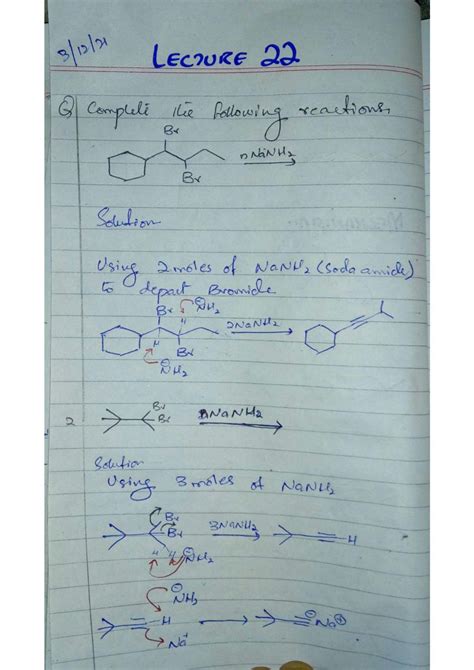 3/12/21
LECTURE 22
Q) Complete the following reactions
Br
nNaNH2
Br
Solution
Using 2 moles of NaNH2 (Sodaamide)
to depart Bromide
Br H ⊖NH2
2NaNH2
H Br
⊖NH2
2
Br
Br
nNaNH2
Solution
Using 3 moles of NaNH2
Br
Br
3NaNH2
H
H H ⊖NH2
⊖NH2
H
Na+
⊖ Na⊕